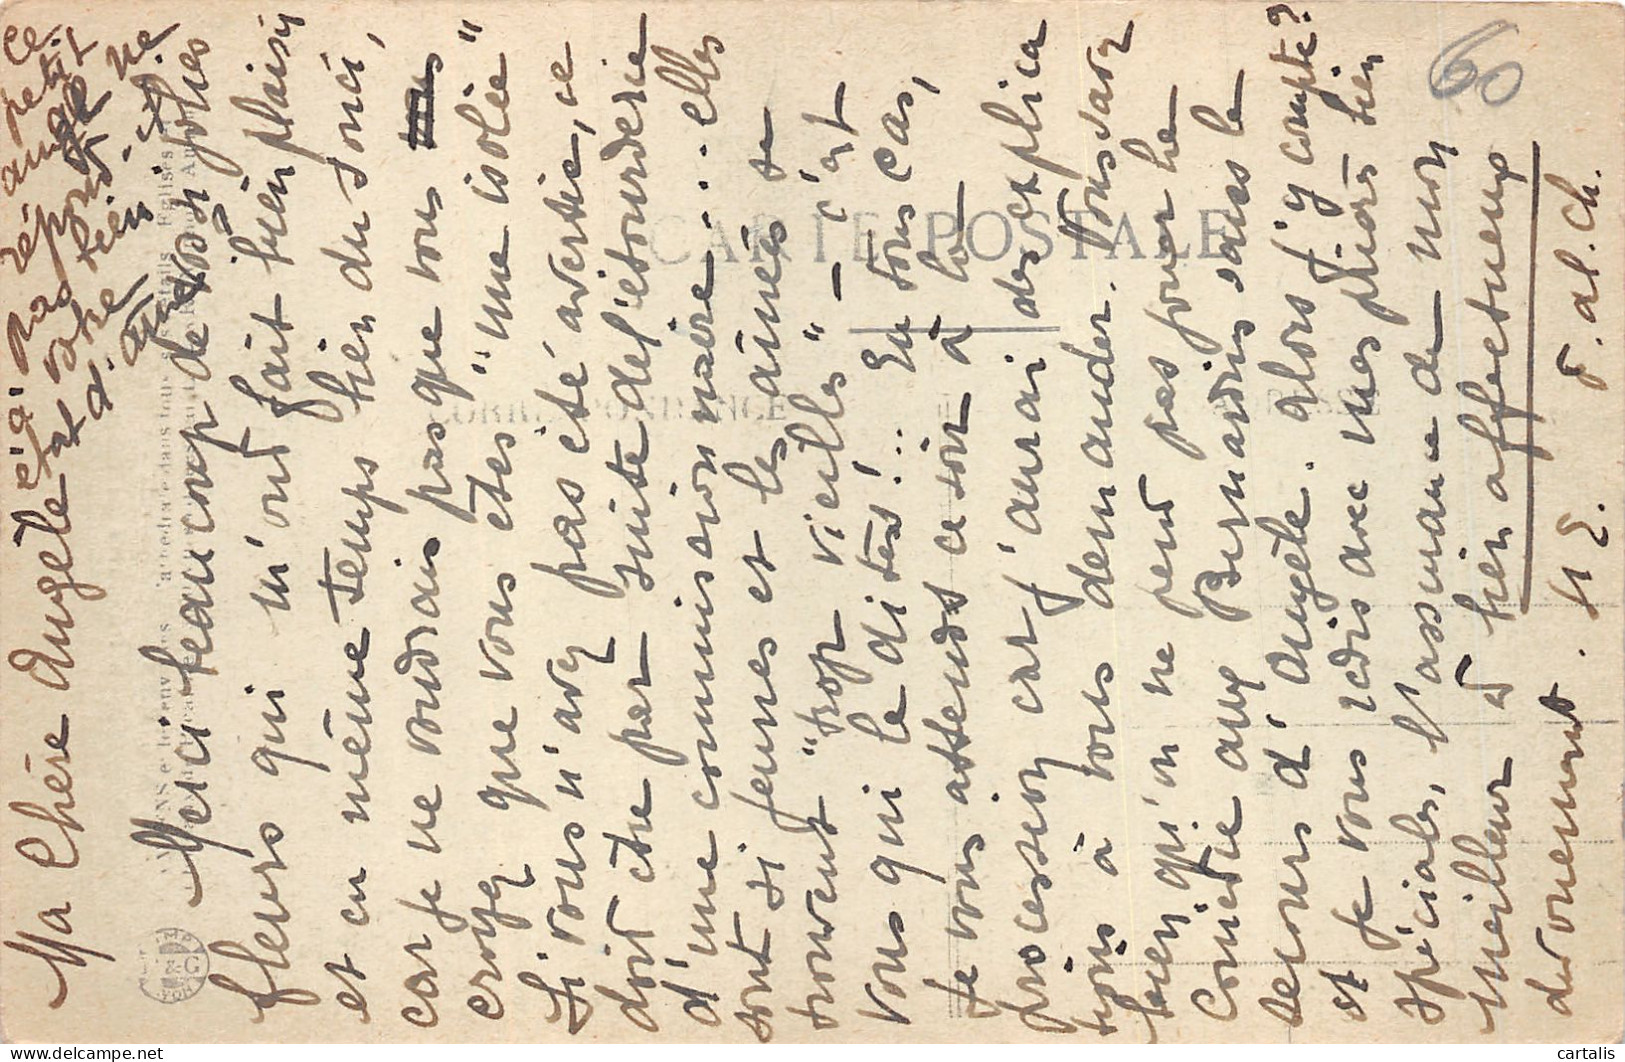 Ma Chère Angèle
Merci beaucoup de vos jolies
fleurs qui m'ont fait bien plaisir
et en même temps bien du souci,
car je ne voudrais pas que vous
croyez que vous êtes "une isolée"
Si vous n'avez pas été avertie, ce
doit être par suite de l'étourderie
d'une commissionnaire... elles
sont si jeunes et les aînées se
trouvent "trop vieilles" – c'est
vous qui le dites!.. En tous cas,
je vous attends ce soir à la
procession car j'aurai des explica
tions à vous demander. Vous savez
bien qu'on ne peut pas jouer he
Comédie aux Bernardins sans le
secours d'Angèle. alors j'y compte?
et je vous redis avec mes prières bien
spéciales, l'assurance de mon
meilleur et bien affectueux
dévouement. M E. St. al. Ch.
Ce
petit
ange ne
répond
pas
c'est
d'
60
CARTE POSTALE
CORRESPONDANCE
cartalis